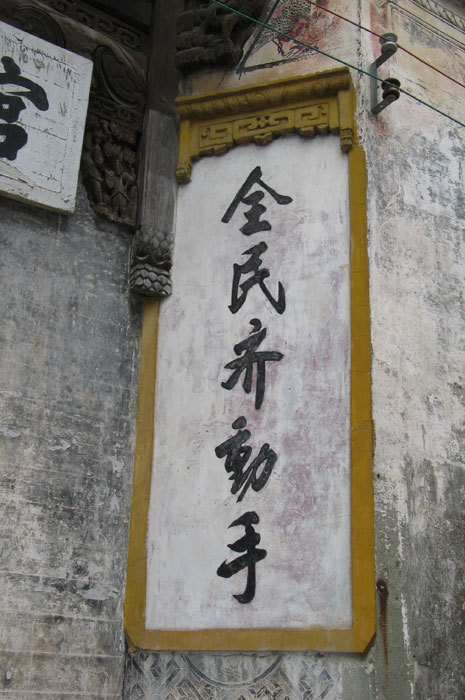 宫
全民齐動手